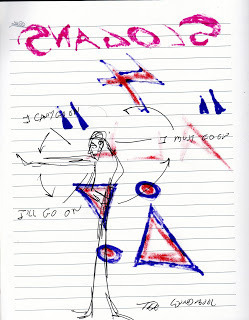 SLOGANS
I CAN'T GO ON
I MUST GO ON
I'LL GO ON